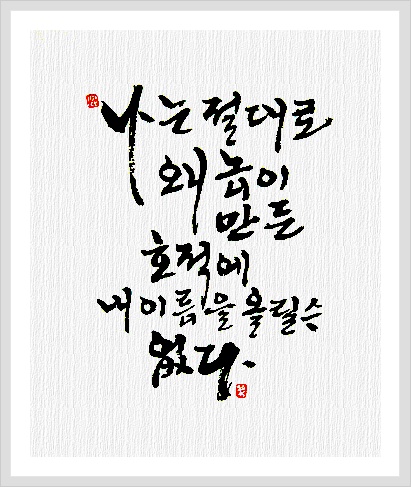 나는 절대로
왜놈이
만든
호적에
내 이름을 올릴 수
없다.